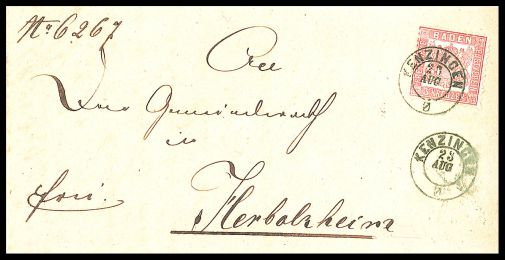 No 6267
BADEN
KENZINGEN
23
AUG
An
Den Gemeinderath
in
KENZINGEN
23
AUG
frei.
Herbolzheim